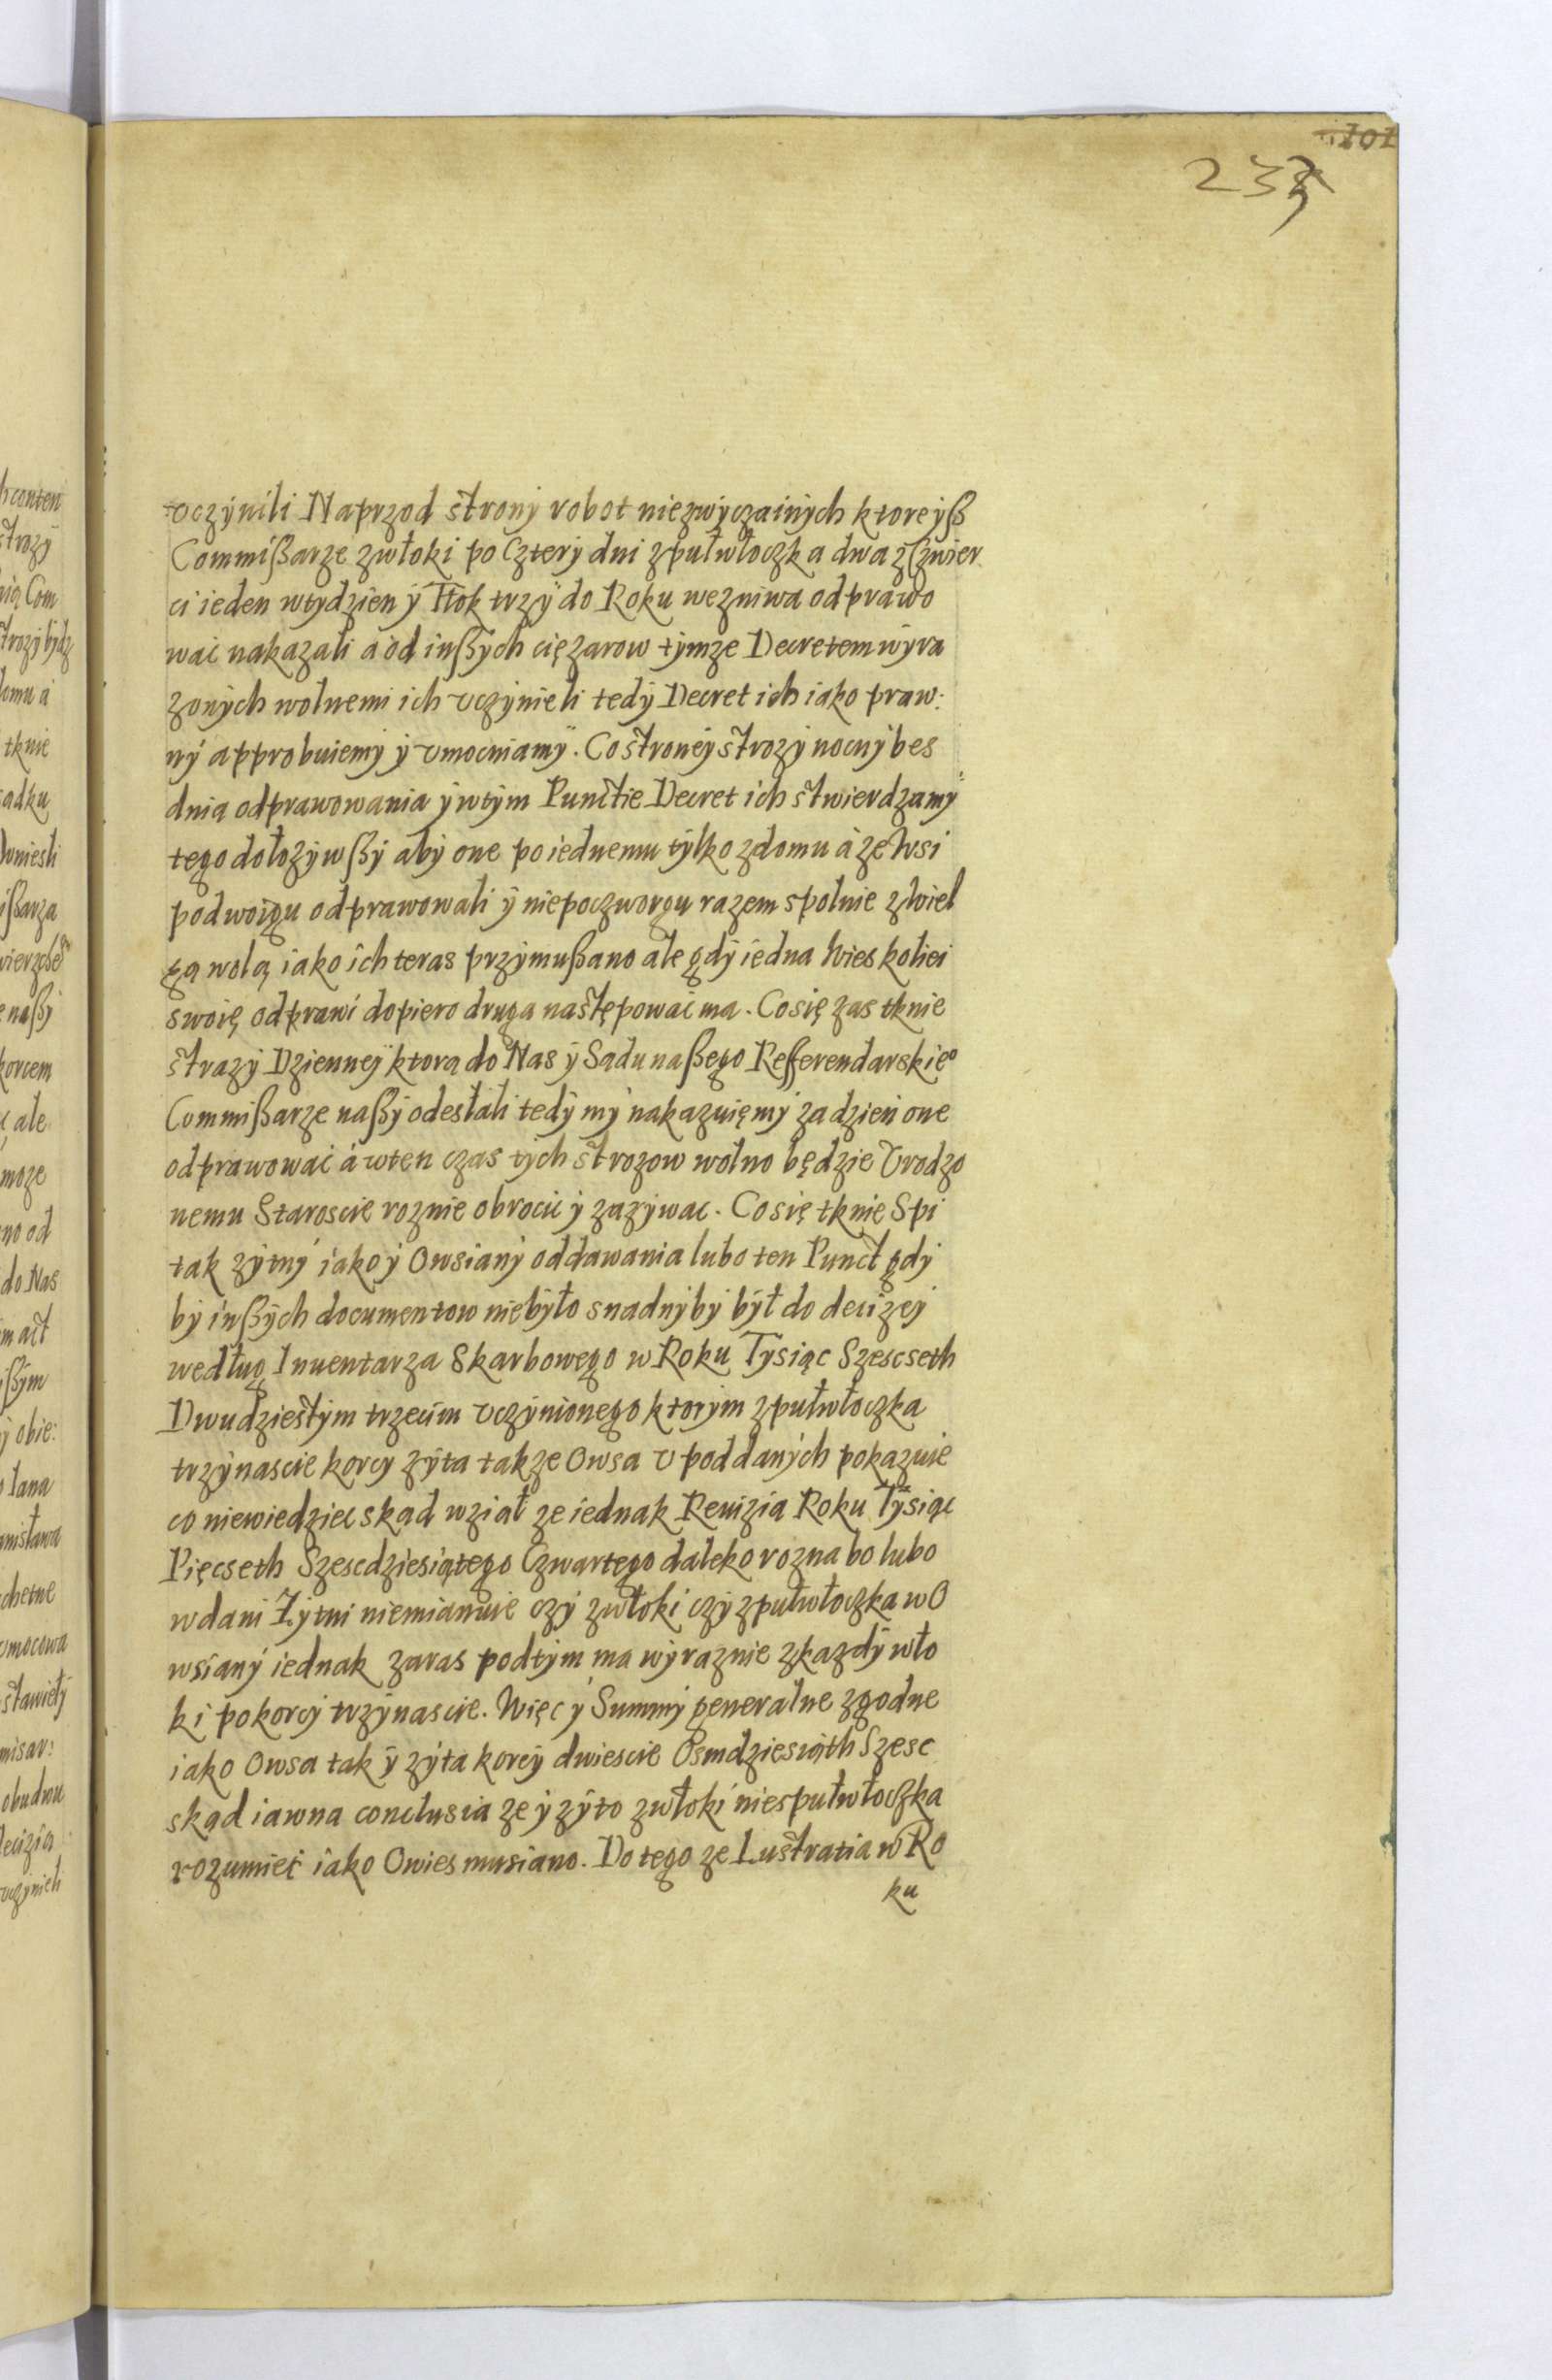 101
233
vczynili Naprzod strony robot niezwyczainych ktore yß
Commißarze zwłoki po Cztery dni zpułwłoczka dwa zCzwier
ci ieden wtydzien y Tłok trzy do Roku wezniwa odprawo
wać nakazali a od inßych ciężarow tymze Decretem wyra
zonych wolnemi ich vczynieli tedy Decret ich iako praw:
ny approbuiemy y vmocniamy. Co stroney strozy nocny bes
dnia odprawowania y wtym Punctie Decret ich stwierdzamy
tego dołozywßy aby one po iednemu tylko zdomu à ze Wsi
podwoigu odprawowali y niepoczworgu razem spolnie zwiel
gą wolą iako ich teras przymußano ale gdy iedna Wies koliei
swoię odprawi dopiero druga nastepować ma. Co się zas tknie
strazy Dzienney ktorą do Nas y Sądu naßego Refferendarskieo
Commißarze naßy odesłali tedy my nakazuięmy za dzień one
odprawować à wten czas tych strozow wolno będzie Vrodzo
nemu Staroscie roznie obrocic y zazywac. Co się tknie Spi
tak zytny iako y Owsiany oddawania lubo ten Punct gdy
by inßych documentow niebyło snadny by był do decizey
według Inuentarza Skarbowego w Roku Tysiąc Szescseth
Dwudziestym trzecim vczynionego ktorym zpułwłoczka
trzynascie korcy zyta takze Owsa v poddanych pokazuie
co niewiedziec skad wziął ze iednak Reuizia Roku Tysiąc
Pięcseth Szescdziesiątego Czwartego daleko rozna bo lubo
w dani Zytni niemianuie czy zwłoki czy zpułwłoczka w O
wsiany iednak zaras podtym ma wyraznie zkazdy wło
ki po korcy trzynascie. Więc y Summy generalne zgodne
iako Owsa tak y zyta korcy dwiescie Osmdziesiąth Szesc
skąd iawna conclusia ze y zyto zwłoki nie spułwłoczka
rozumieć iako Owies musiano. Do tego ze Lustratia w Ro
ku